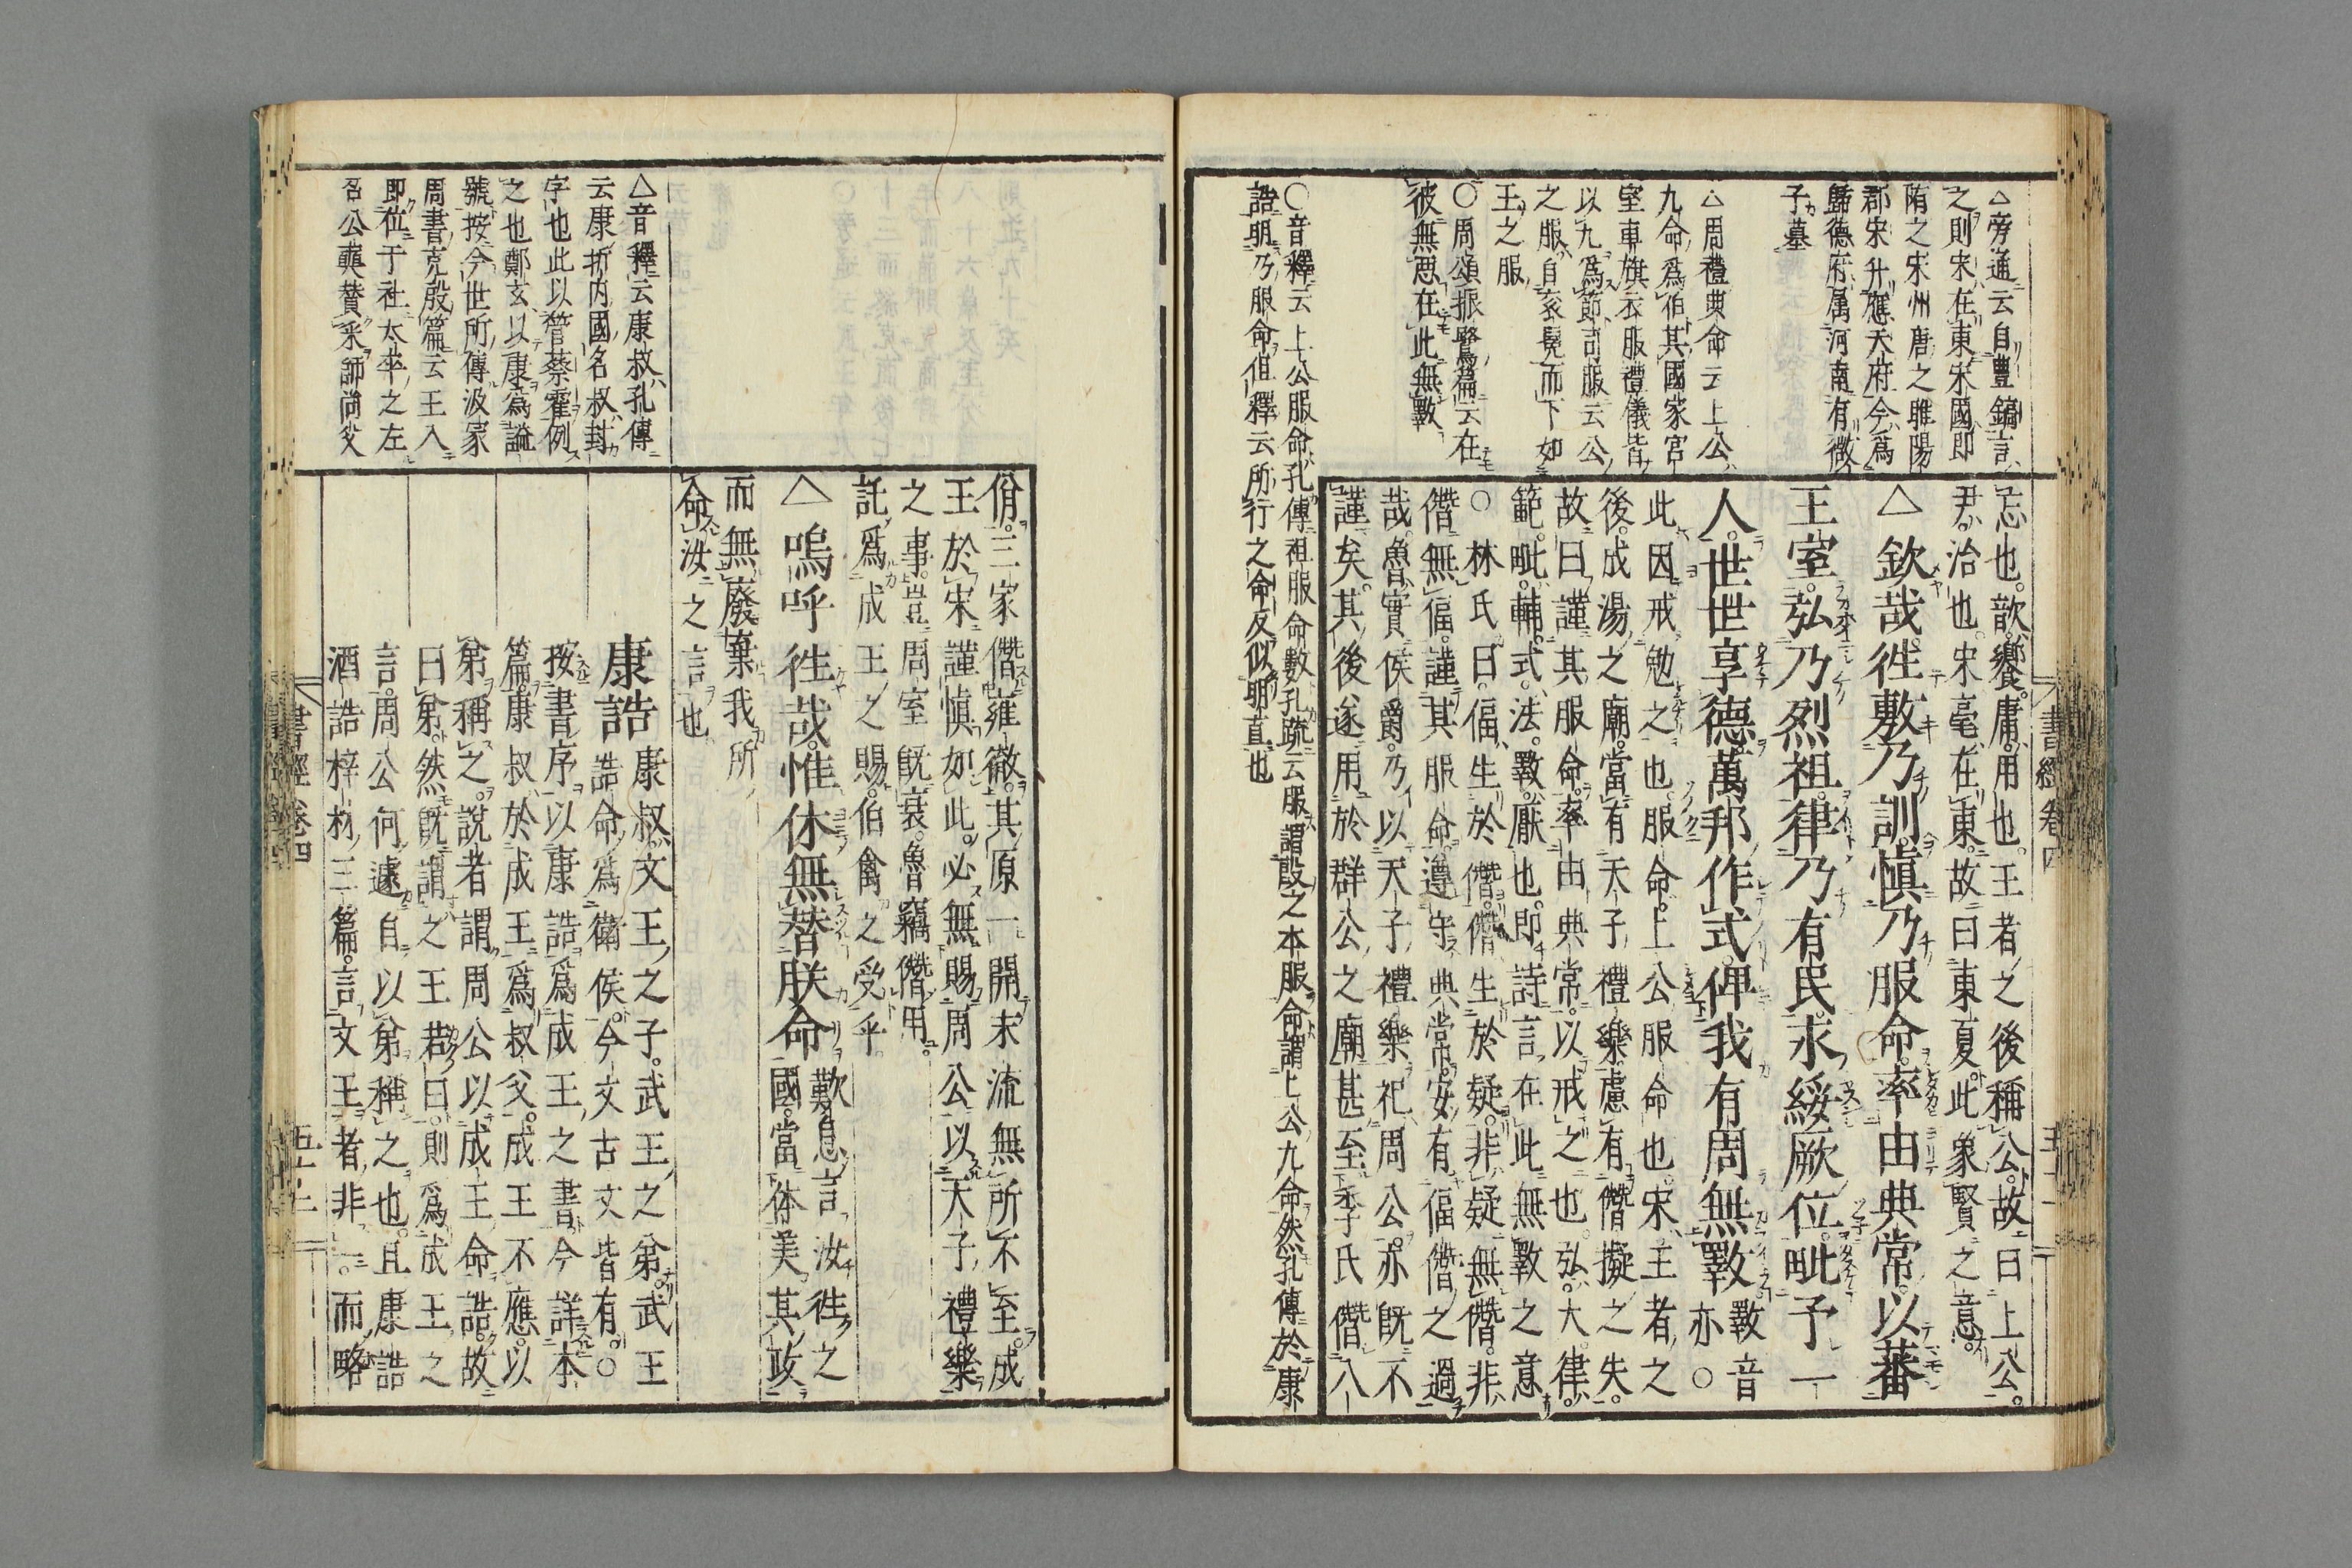 △旁通云自豊鎬言
之則宋在東宋國即
隋之宋州唐之睢陽
郡宋升應天府今爲
歸德府属河南有微
子墓
△周禮典命云上公
九命爲伯其國家宮
室車旗衣服禮儀皆
以九爲節司服云公
之服自衮冕而下如
王之服
○周頌振鷺篇云在
彼無惡在此無斁
○音釋云上公服命孔傳祖服命數孔疏云服謂殷之本服命謂上公九命然孔傳於康
誥明乃服命但釋云所行之命反似明直也
忘也。歆饗。庸用也。王者之後稱公。故曰上公。
尹。治也。宋亳在東。故曰東夏。此象賢之意。
△欽哉。徃敷乃訓。愼乃服命。率由典常。以蕃
王室。弘乃烈祖。律乃有民。永綏厥位。毗予一
人。世世享德。萬邦作式。俾我有周無斁 斁音亦○
此因戒勉之也。服命。上公服命也。宋。王者之
後。成湯之廟。當有天子禮樂。慮有僭擬之失。
故曰謹其服命。率由典常。以戒之也。弘。大。律。
範。毗。輔。式。法。斁。厭也。即詩言在此無斁之意
○林氏曰。偪生於僭。僭生於疑。非疑無僭。非
僭無偪。謹其服命。遵守典常。安有偪僭之過
哉。魯實侯爵。乃以天子禮樂祀周公。亦既不
謹矣。其後遂用於群公之廟。甚至季氏僭八
佾。三家僭雍徹。其原一開。末流無所不至。成
王於宋謹愼如此。必無賜周公以天子禮樂
之事。豈周室既衰。魯竊僭用。
託爲成王之賜。伯禽之受乎。
△嗚呼徃哉。惟休無替朕命 歎息言汝徃之國。當休美其政
而無廢棄我所
命汝之言也
康誥 康叔。文王之子。武王之弟。武王
誥命爲衛侯。今文古文皆有。○
按書序。以康誥爲成王之書。今詳本
篇。康叔於成王爲叔父。成王不應以
弟稱之。說者謂周公以成王命誥。故
曰弟。然既謂之王若曰。則爲成王之
言。周公何遽自以弟稱之也。且康誥
酒誥梓材三篇。言文王者非一。而略
△音釋云康叔孔傳
云康圻内國名叔封
字也此以管蔡霍例
之也鄭玄以康爲謚
號按今世所傳汲冢
周書克殷篇云王入
即位于社太卒之左
召公奭賛采師尚父
書經卷四
五十一
書經卷四